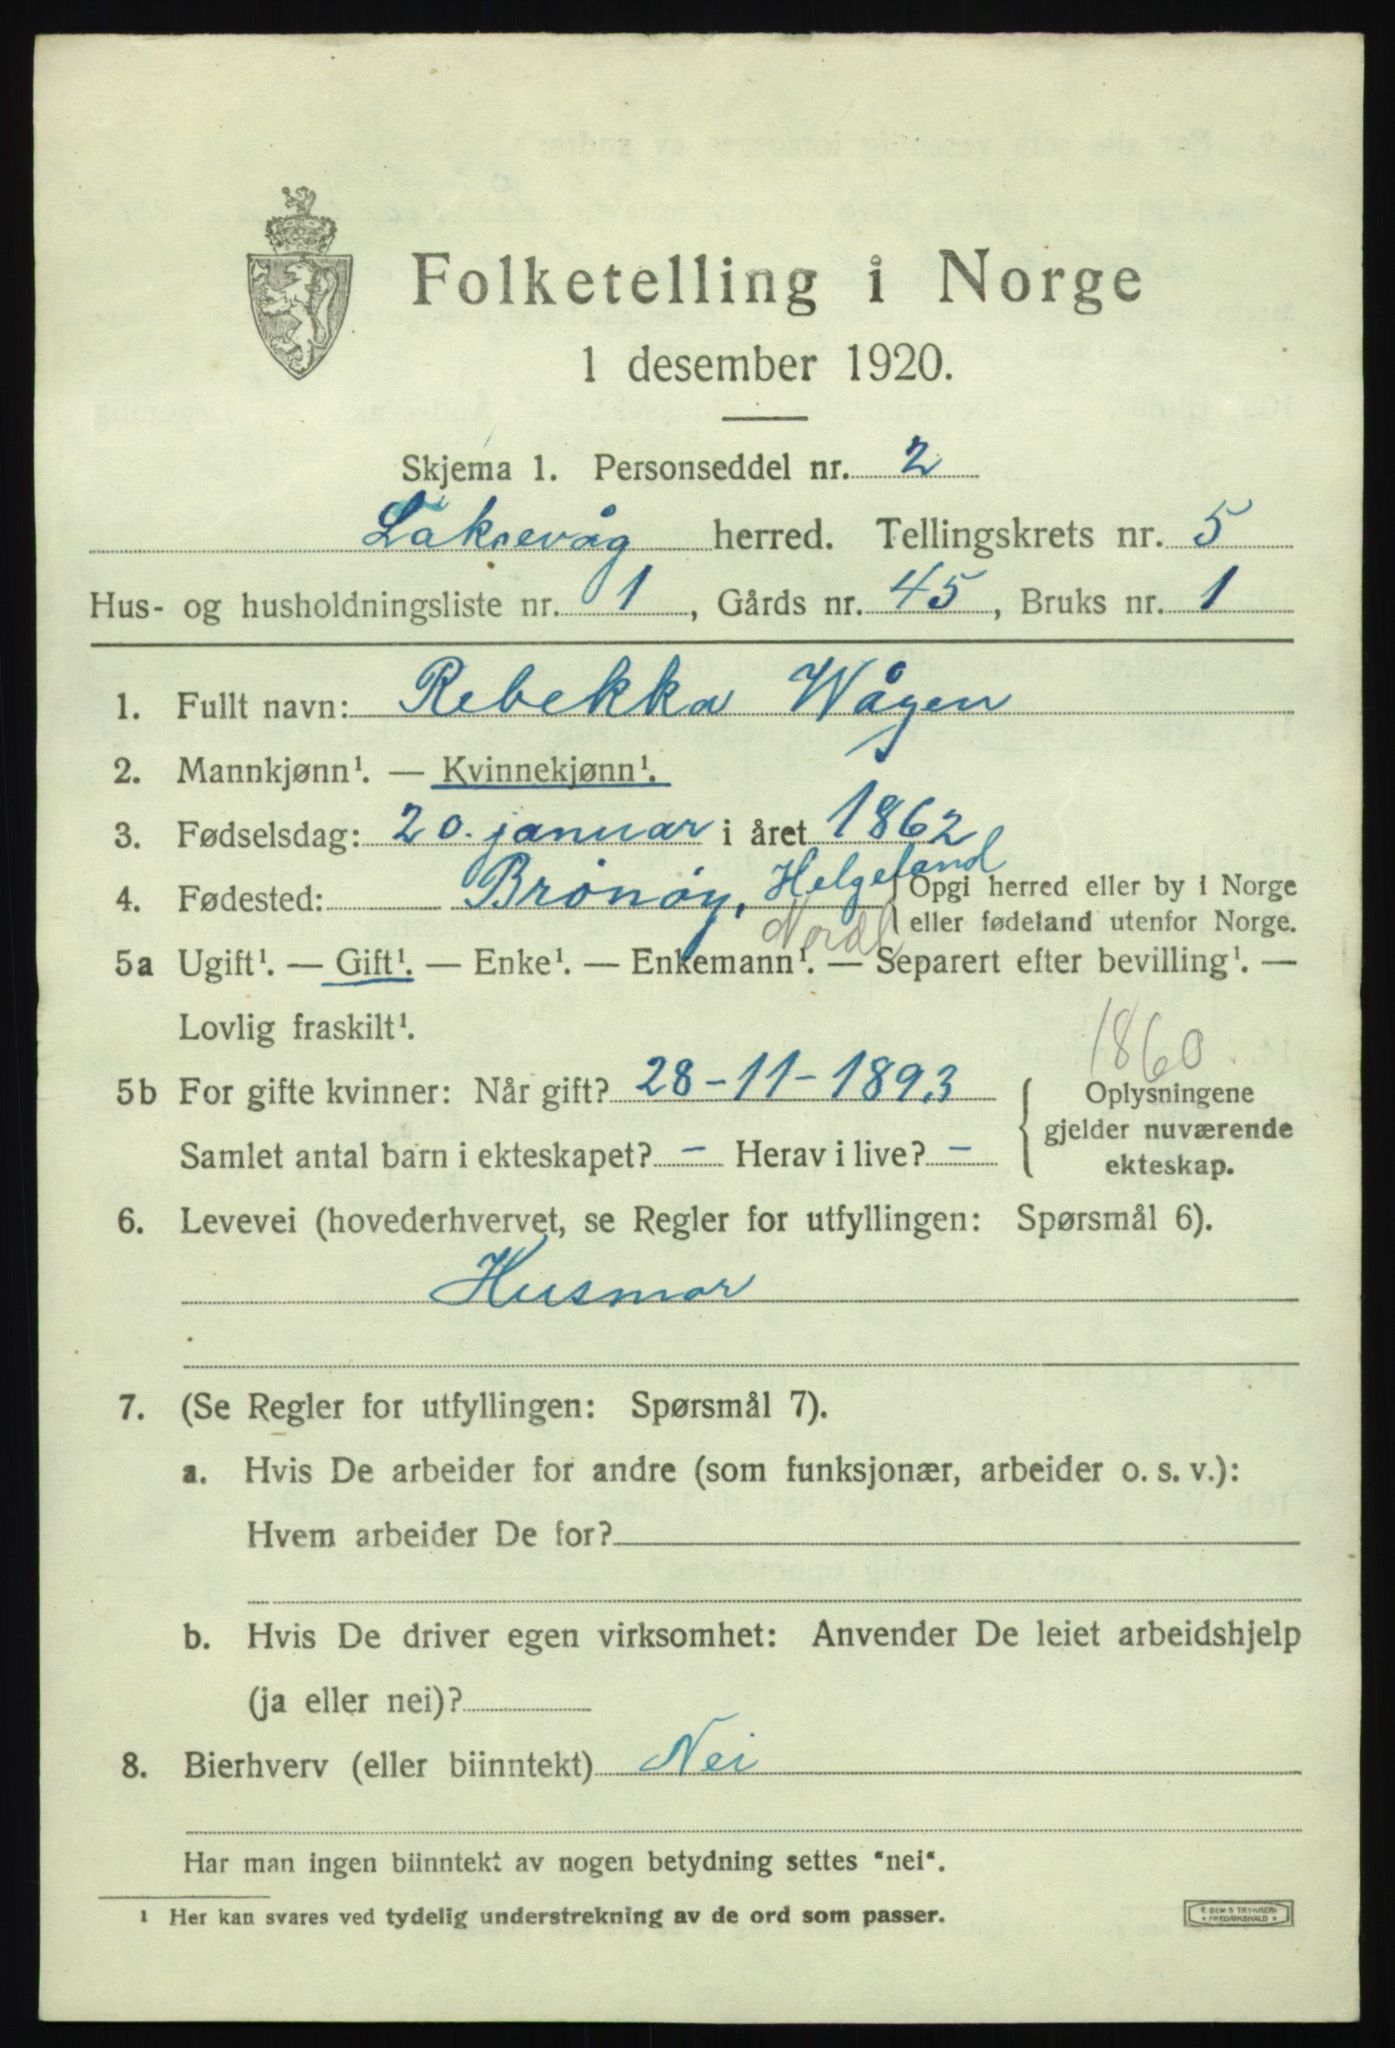 Folketelling i Norge
1 desember 1920.
Skjema 1. Personseddel nr. 2
Laksevåg herred. Tellingskrets nr. 5
Hus- og husholdningsliste nr. 1, Gårds nr. 45, Bruks nr. 1
1. Fullt navn: Rebekka Wågen
2. Mannkjønn¹. — Kvinnekjønn¹.
3. Fødselsdag: 20. januar i året 1862
4. Fødested: Brönöy, Helgeland Opgi herred eller by i Norge
Nordl eller fødeland utenfor Norge.
5a Ugift¹. — Gift¹. — Enke¹. — Enkemann¹. — Separert efter bevilling¹. —
Lovlig fraskilt¹.
1860
5b For gifte kvinner: Når gift? 28-11-1893 Oplysningene
gjelder nuværende
Samlet antal barn i ekteskapet? - Herav i live? - ekteskap.
6. Levevei (hovederhvervet, se Regler for utfyllingen: Spørsmål 6).
Husmor
7. (Se Regler for utfyllingen: Spørsmål 7).
a. Hvis De arbeider for andre (som funksjonær, arbeider o. s. v.):
Hvem arbeider De for?
b. Hvis De driver egen virksomhet: Anvender De leiet arbeidshjelp
(ja eller nei)?
8. Bierhverv (eller biinntekt) Nei
Har man ingen biinntekt av nogen betydning settes "nei".
¹ Her kan svares ved tydelig understrekning av de ord som passer.
FREDRIKSHALD